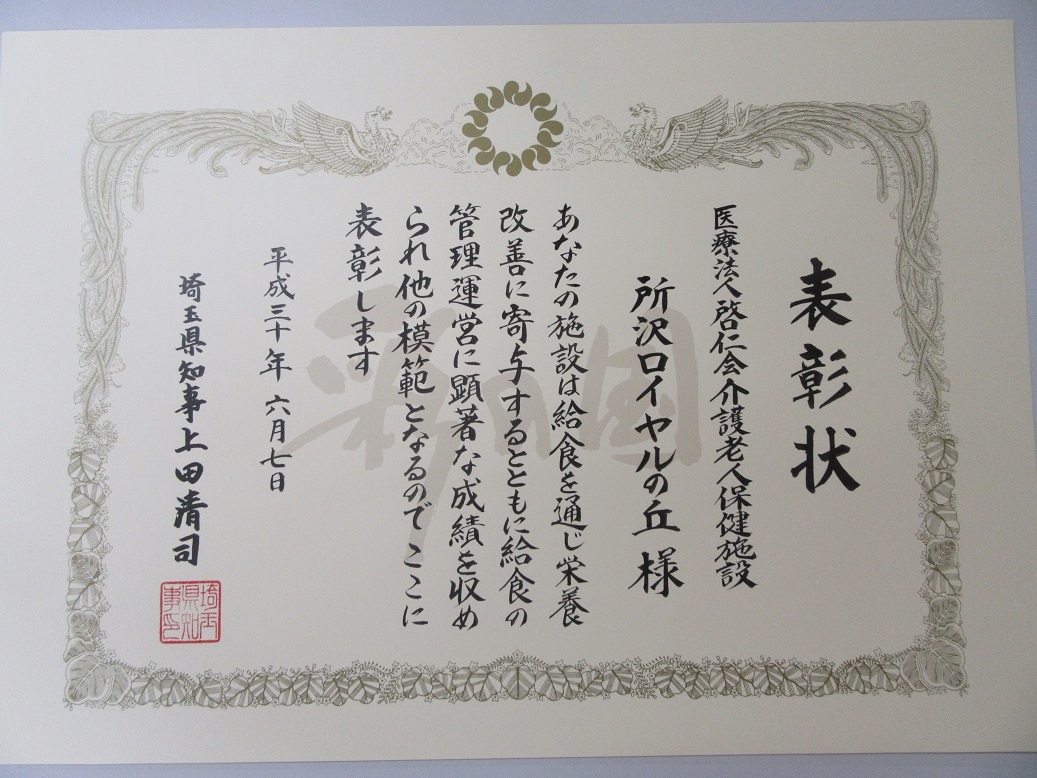 表彰状
医療法人啓仁会介護老人保健施設
所沢ロイヤルの丘 様
あなたの施設は給食を通じ栄養
改善に寄与するとともに給食の
管理運営に顕著な成績を収め
られ他の模範となるのでここに
表彰します
平成三十年六月七日
埼玉県知事上田清司
埼玉県知事印
彩の国